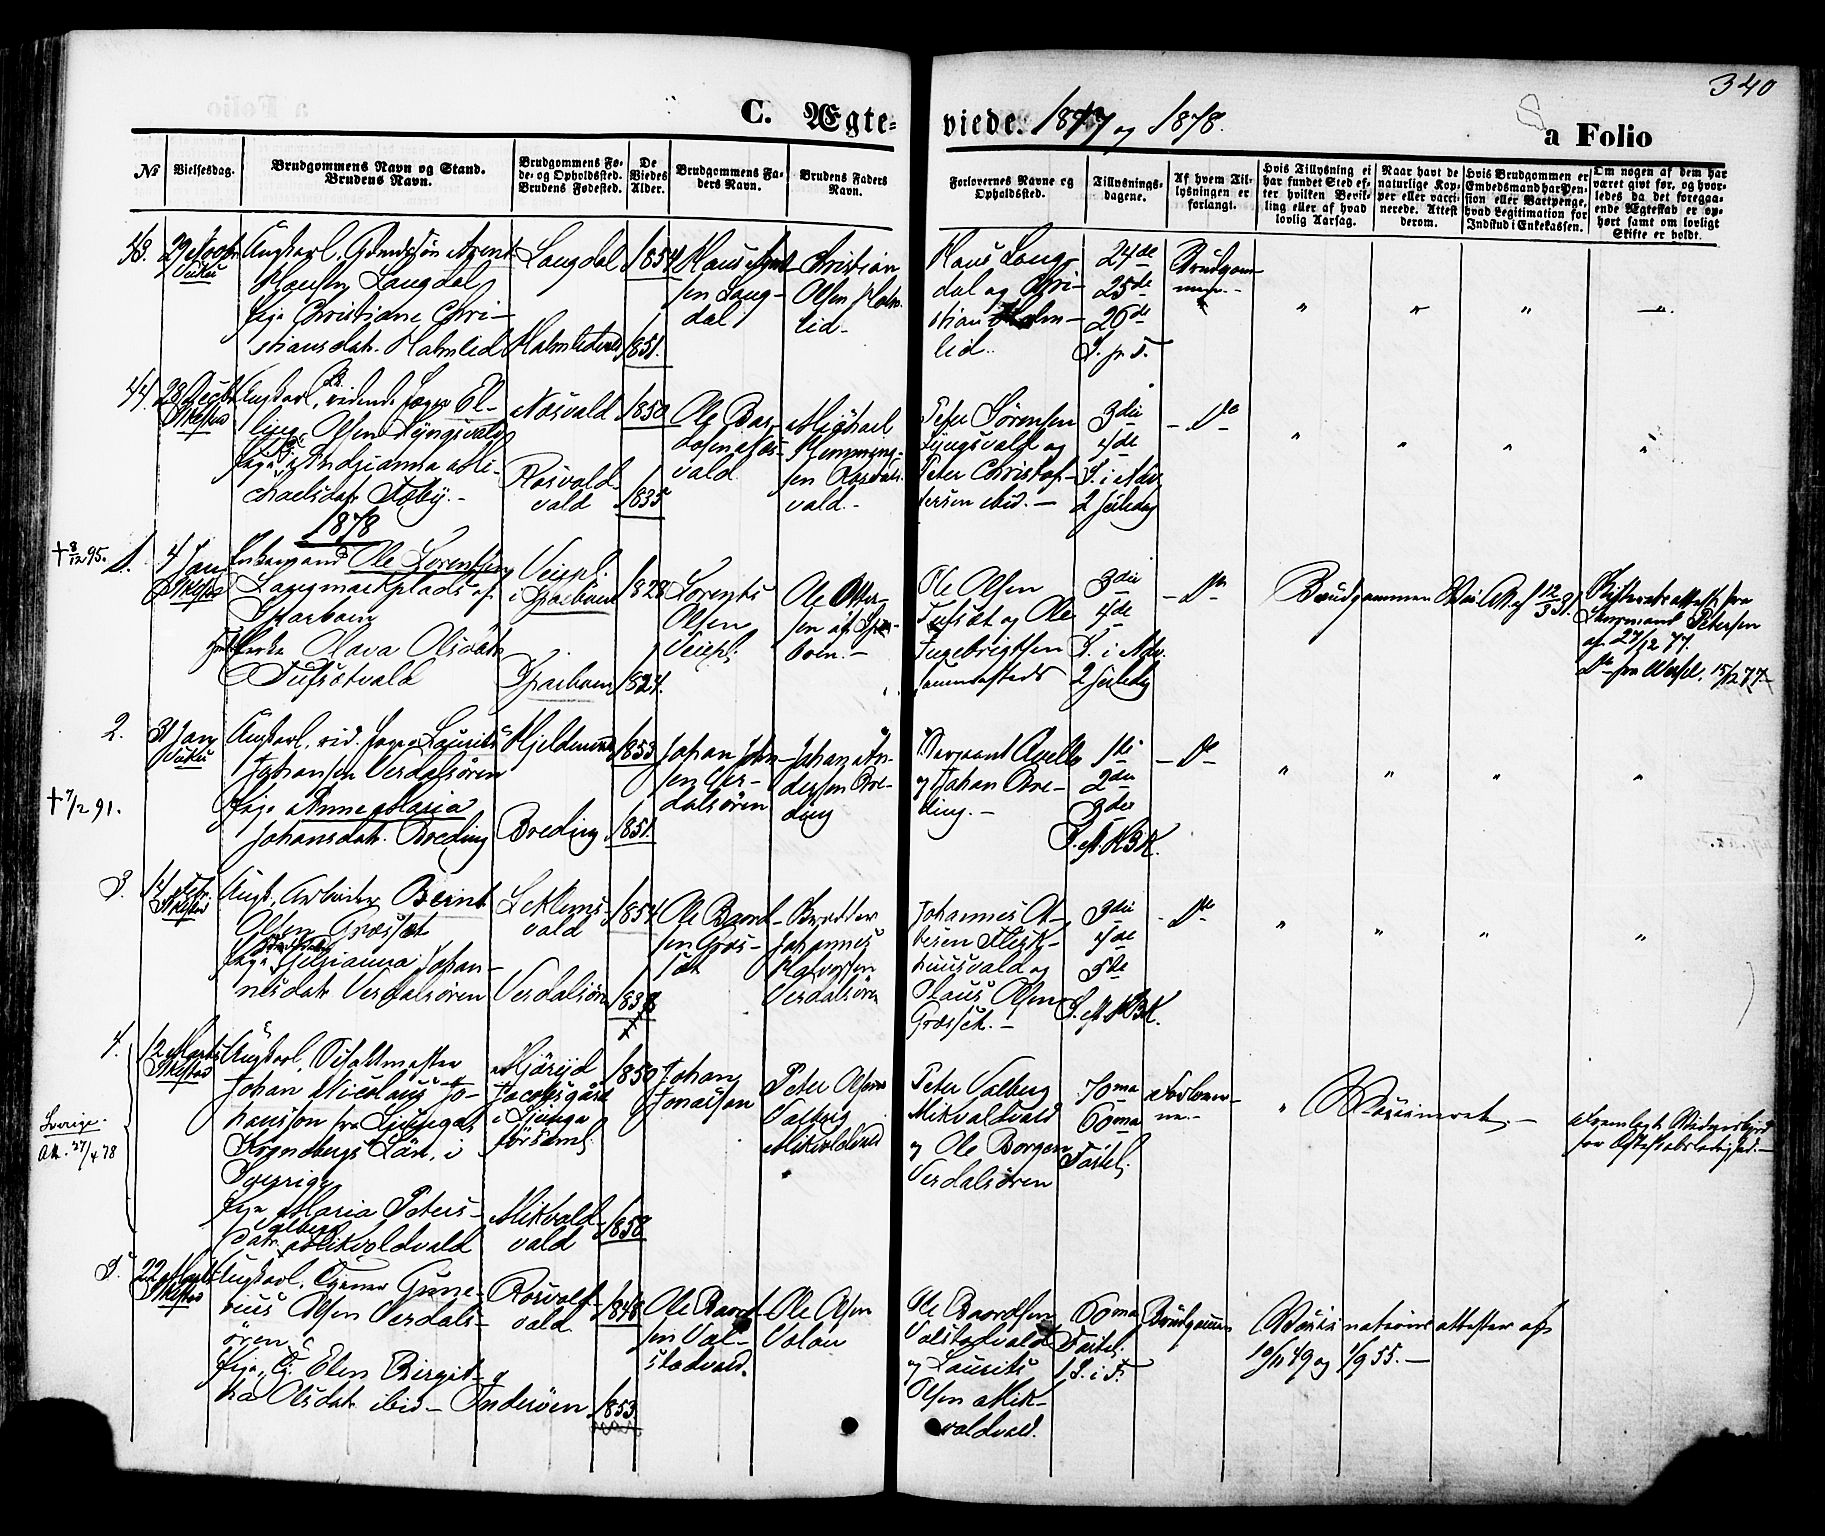 340
C. Ægteviede. 1877 og 1878.
a Folio
No
Vielsesdag.
Brudgommens Navn og Stand.
Brudens Navn.
Brudgommens Fø-
de- og Opholdssted.
Brudens Fødested.
De
Viedes
Alder.
Brudgommens Fa-
ders Navn.
Brudens Faders
Navn.
Forlovernes Navne og
Opholdssted.
Tillysnings-
dagene.
Af hvem Til-
lysningen er
forlangt.
Hvis Tillysning ei
har fundet Sted ef-
ter hvilken Bevil-
ling eller af hvad
lovlig Aarsag.
Naar havt de
naturlige Kop-
per eller vacci-
nerede. Attest
derom.
Hvis Brudgommen er
Embedsmand har Pen-
sion eller Vartpenge,
hvad Legitimation for
Indskud i Enkekassen.
Om nogen af dem har
været givt før, og hvor-
ledes da det foregaa-
ende Ægteskab er op-
hørt samt om lovligt
Skifte er holdt.
43.
29 Novbr
Vuku
Ungkarl, Gaardssøn Arent
Hansen Langdal
Pige Christiane Chri-
stiansdatr. Halmlid
Langdal
Halmlid
1854
1851.
Hans Arent-
sen Lang-
dal
Christian
Olsen Halm-
lid
Hans Lang-
dal og Chri-
stian Halm-
lid.
24de
25de
26de
S. p. T.
Brudgom-
men
44.
28 Decbr
Stiklestad
Ungkarl, ridende Jæger El-
ling Olsen Lyngsvald
Pige Andrianna Mi-
chaelsdatr Stoby.
Rosvald-
vald
1850
1835
Ole Bar-
dosen
vald
Michael
Hemming-
sen
vald
Peter Sørensen
Lyngsvald og
Peter Christof-
fersen ibid.
3die
4de
S. i Adv.
2 Juledag
Do
1878
+ 8/12 95.
1.
4 Jan
Stiklestad
Enkemand Ole Lorentsen
plads af
Sparboen
Enke Olava Olsdatr
Tufsetvald
i Sparboen
Sparboen
1828
1824.
Lorents
Olsen
Ole Otter-
sen af Spar-
boen.
Ole Olsen
Tufset og Ole
Ingebrigtsen
sammesteds
3die
4de
S. i Adv.
2 Juledag
Do
Brudgommen
Skifteretsattest fra
Lensmand Petersen
af 27/12 77.
Do fra Wessel, 15/12 77.
2.
31 Jan
Vuku
Ungkarl, rid. Jæger Laurits
Johansen Verdalsøren
+ 7/2 91.
Pige Anne Maria
Johansdatr. Breding
Breding
1853
1851
Johan John-
sen Ver-
dalsøren
Johan An-
dersen Bre-
ding
Sergeant Quello
og Johan Bre-
ding.
1ste
2den
3die
S. eft. H3K.
Do
3.
14 Feb.
Stiklestad
Ungk., Arbeider Bernt
Olsen Græsset
Pige Julianna Johan-
nesdatr Verdalsøren
Leklems-
vald
Verdalsøren
1854
1838
Ole Baard-
sen Græs-
set
Johannes
Halvorsen
Verdalsøren
Johannes
vald og
Olaus Olsen
Græsset.
3die
4de
5de
S. eft. H3K.
Do
4.
12 Marts
Stiklestad
Ungkarl,
Johan Nicolaus Jo-
hansson fra Ljunga
Kronobergs Län, i
Sverige
Sverige
Att. 27/4 78
Pige Maria Peters-
datr. Valberg Mikvoldvald
Jacobsgård
i Ljunga
församl.
Mikvold-
vald
1850
1858
Johan
Jonasson
Peter Olsen
Valberg
Mikvoldvald
Peter Valberg
Mikvoldvald
og Ole Borgen
Verdalsøren
70ma
60ma
Fastel.
Forlover-
ne
Vaccineret.
Fremlagt Vidnesbyrd
for Ægteskabsledighed.
5.
22 Marts
Stiklestad
Ungkarl, Tjener Gune-
rius Olsen Verdals-
øren
Pige, Tj. Elen Birgit-
ha Olsdatr ibid
Rosvold-
vald
Inderøen
1848
1853
Ole Baard-
sen Val-
stadvald.
Ole Olsen
Valan
Ole Baardsen
Valstadvald
og Laurits
Olsen Mik-
voldvald.
60ma
Fastel.
1 S. i F.
Brudgommen
Vaccinationsattester af
10/11 49 og 1/9 55.